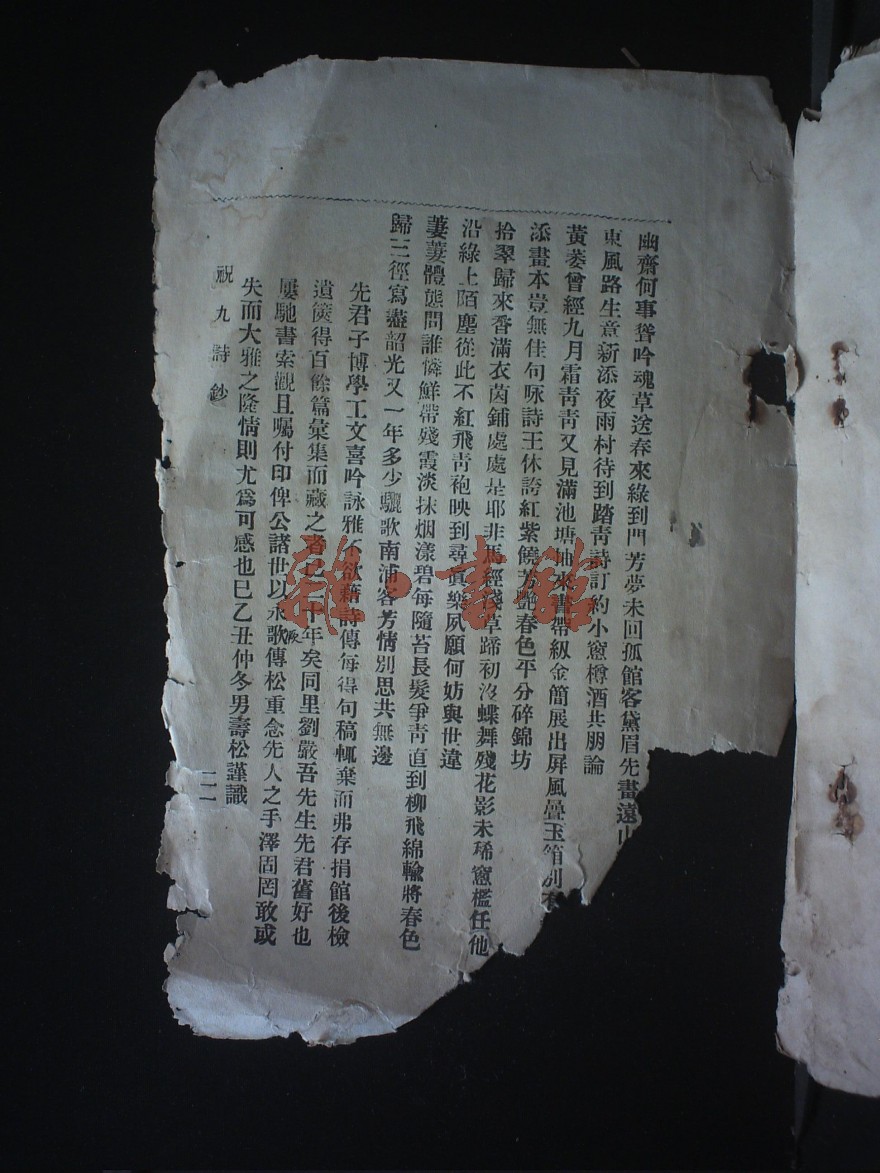 幽齋何事聳吟魂草送春來綠到門芳夢未回孤館客黛眉先畫遠山
東風路生意新添夜雨村待到踏青詩訂約小窻樽酒共朋論
黃萎曾經九月霜青青又見滿池塘抽來書帶級金簡展出屏風疊玉箱別有
添畫本豈無佳句咏詩王休誇紅紫饒芳艷春色平分碎錦坊
拾翠歸來香滿衣茵鋪處處是耶非馬經淺草蹄初沒蝶舞殘花影未稀窻檻任他
沿綠上陌塵從此不紅飛青袍映到尋眞樂夙願何妨與世違
萋萋體態問誰憐鮮帶殘霞淡抹烟漾碧每隨苔長髮爭青直到柳飛綿輸將春色
歸三徑寫盡韶光又一年多少驪歌南浦客芳情別思共無邊
先君子博學工文喜吟詠雅不欲藉詩傳每得句稿輒棄而弗存捐館後檢
遺篋得百餘篇彙集而藏之者已二十年矣同里劉嚴吾先生先君舊好也
屢馳書索觀且囑付印俾公諸世以永歌傳松重念先人之手澤固罔敢或
失而大雅之隆情則尤為可感也已乙丑仲冬男壽松謹識
祝九詩鈔
二一
雜·書館